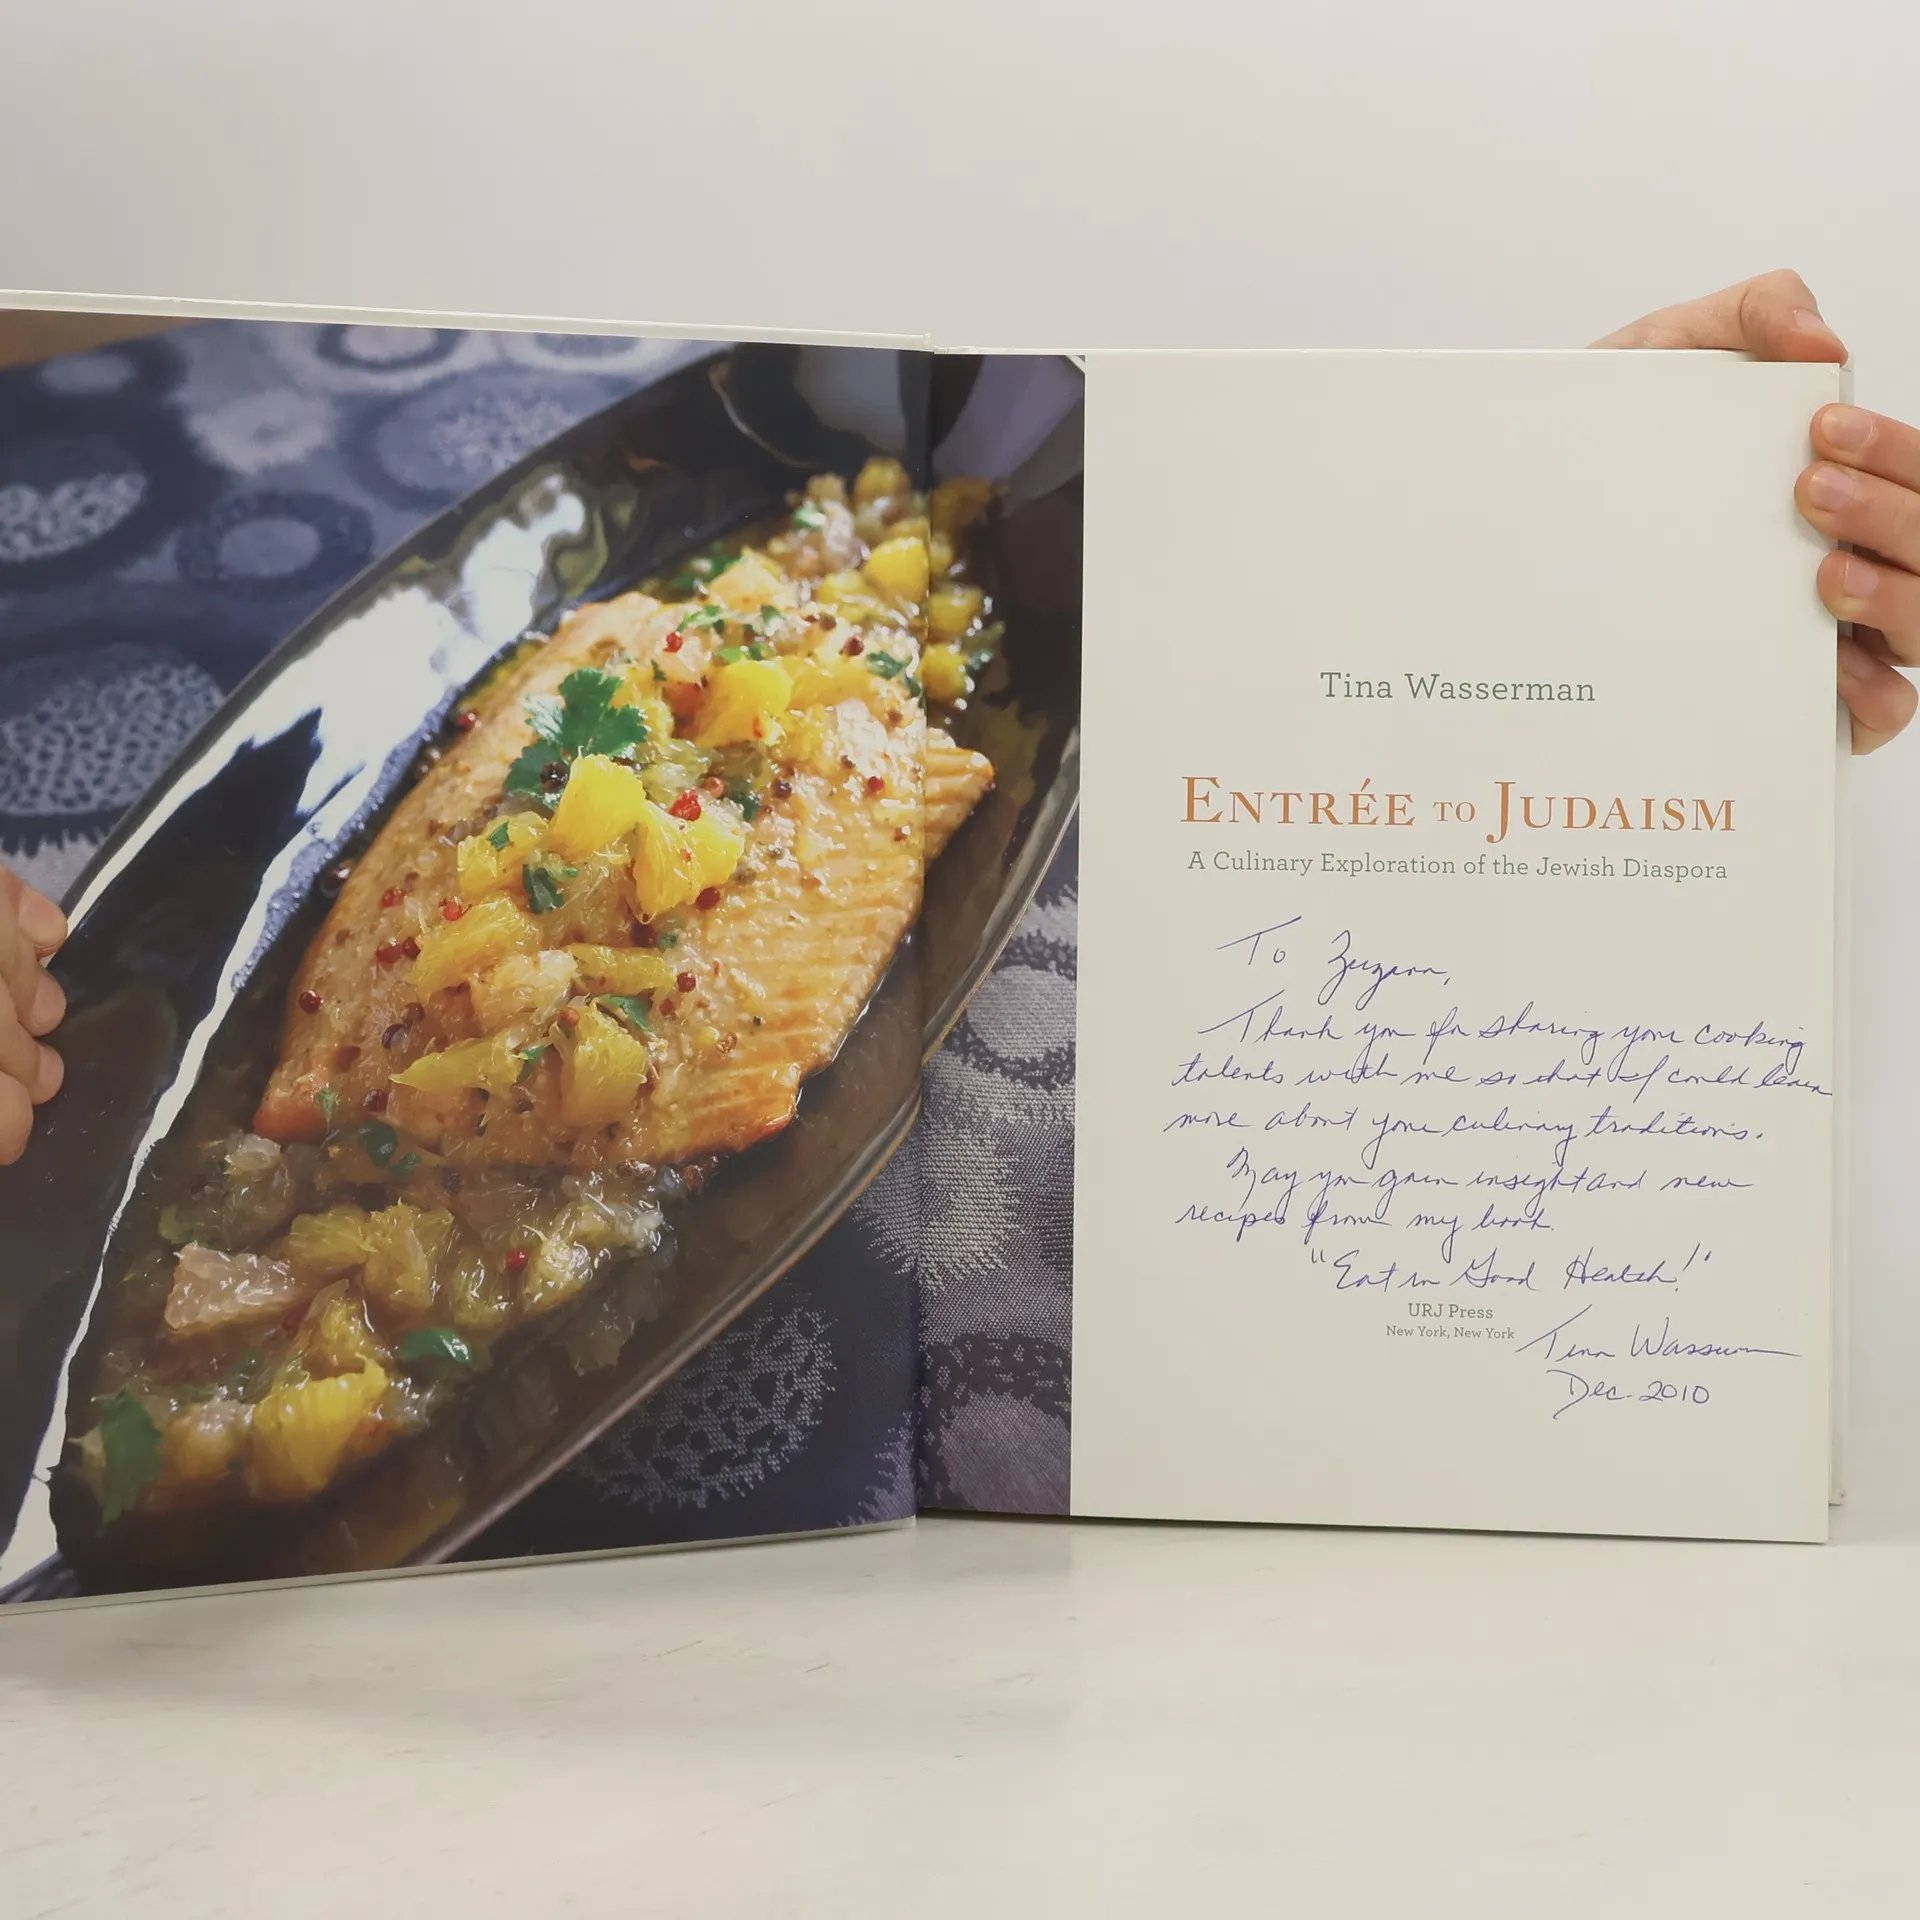 Tina Wasserman
Entrée to Judaism
A Culinary Exploration of the Jewish Diaspora
To Zuzana,
Thank you for sharing your cooking
talents with me so that I could learn
more about your culinary traditions.
May you gain insight and new
recipes from my book.
"Eat in Good Health!"
URJ Press
New York, New York
Tina Wasserman
Dec. 2010